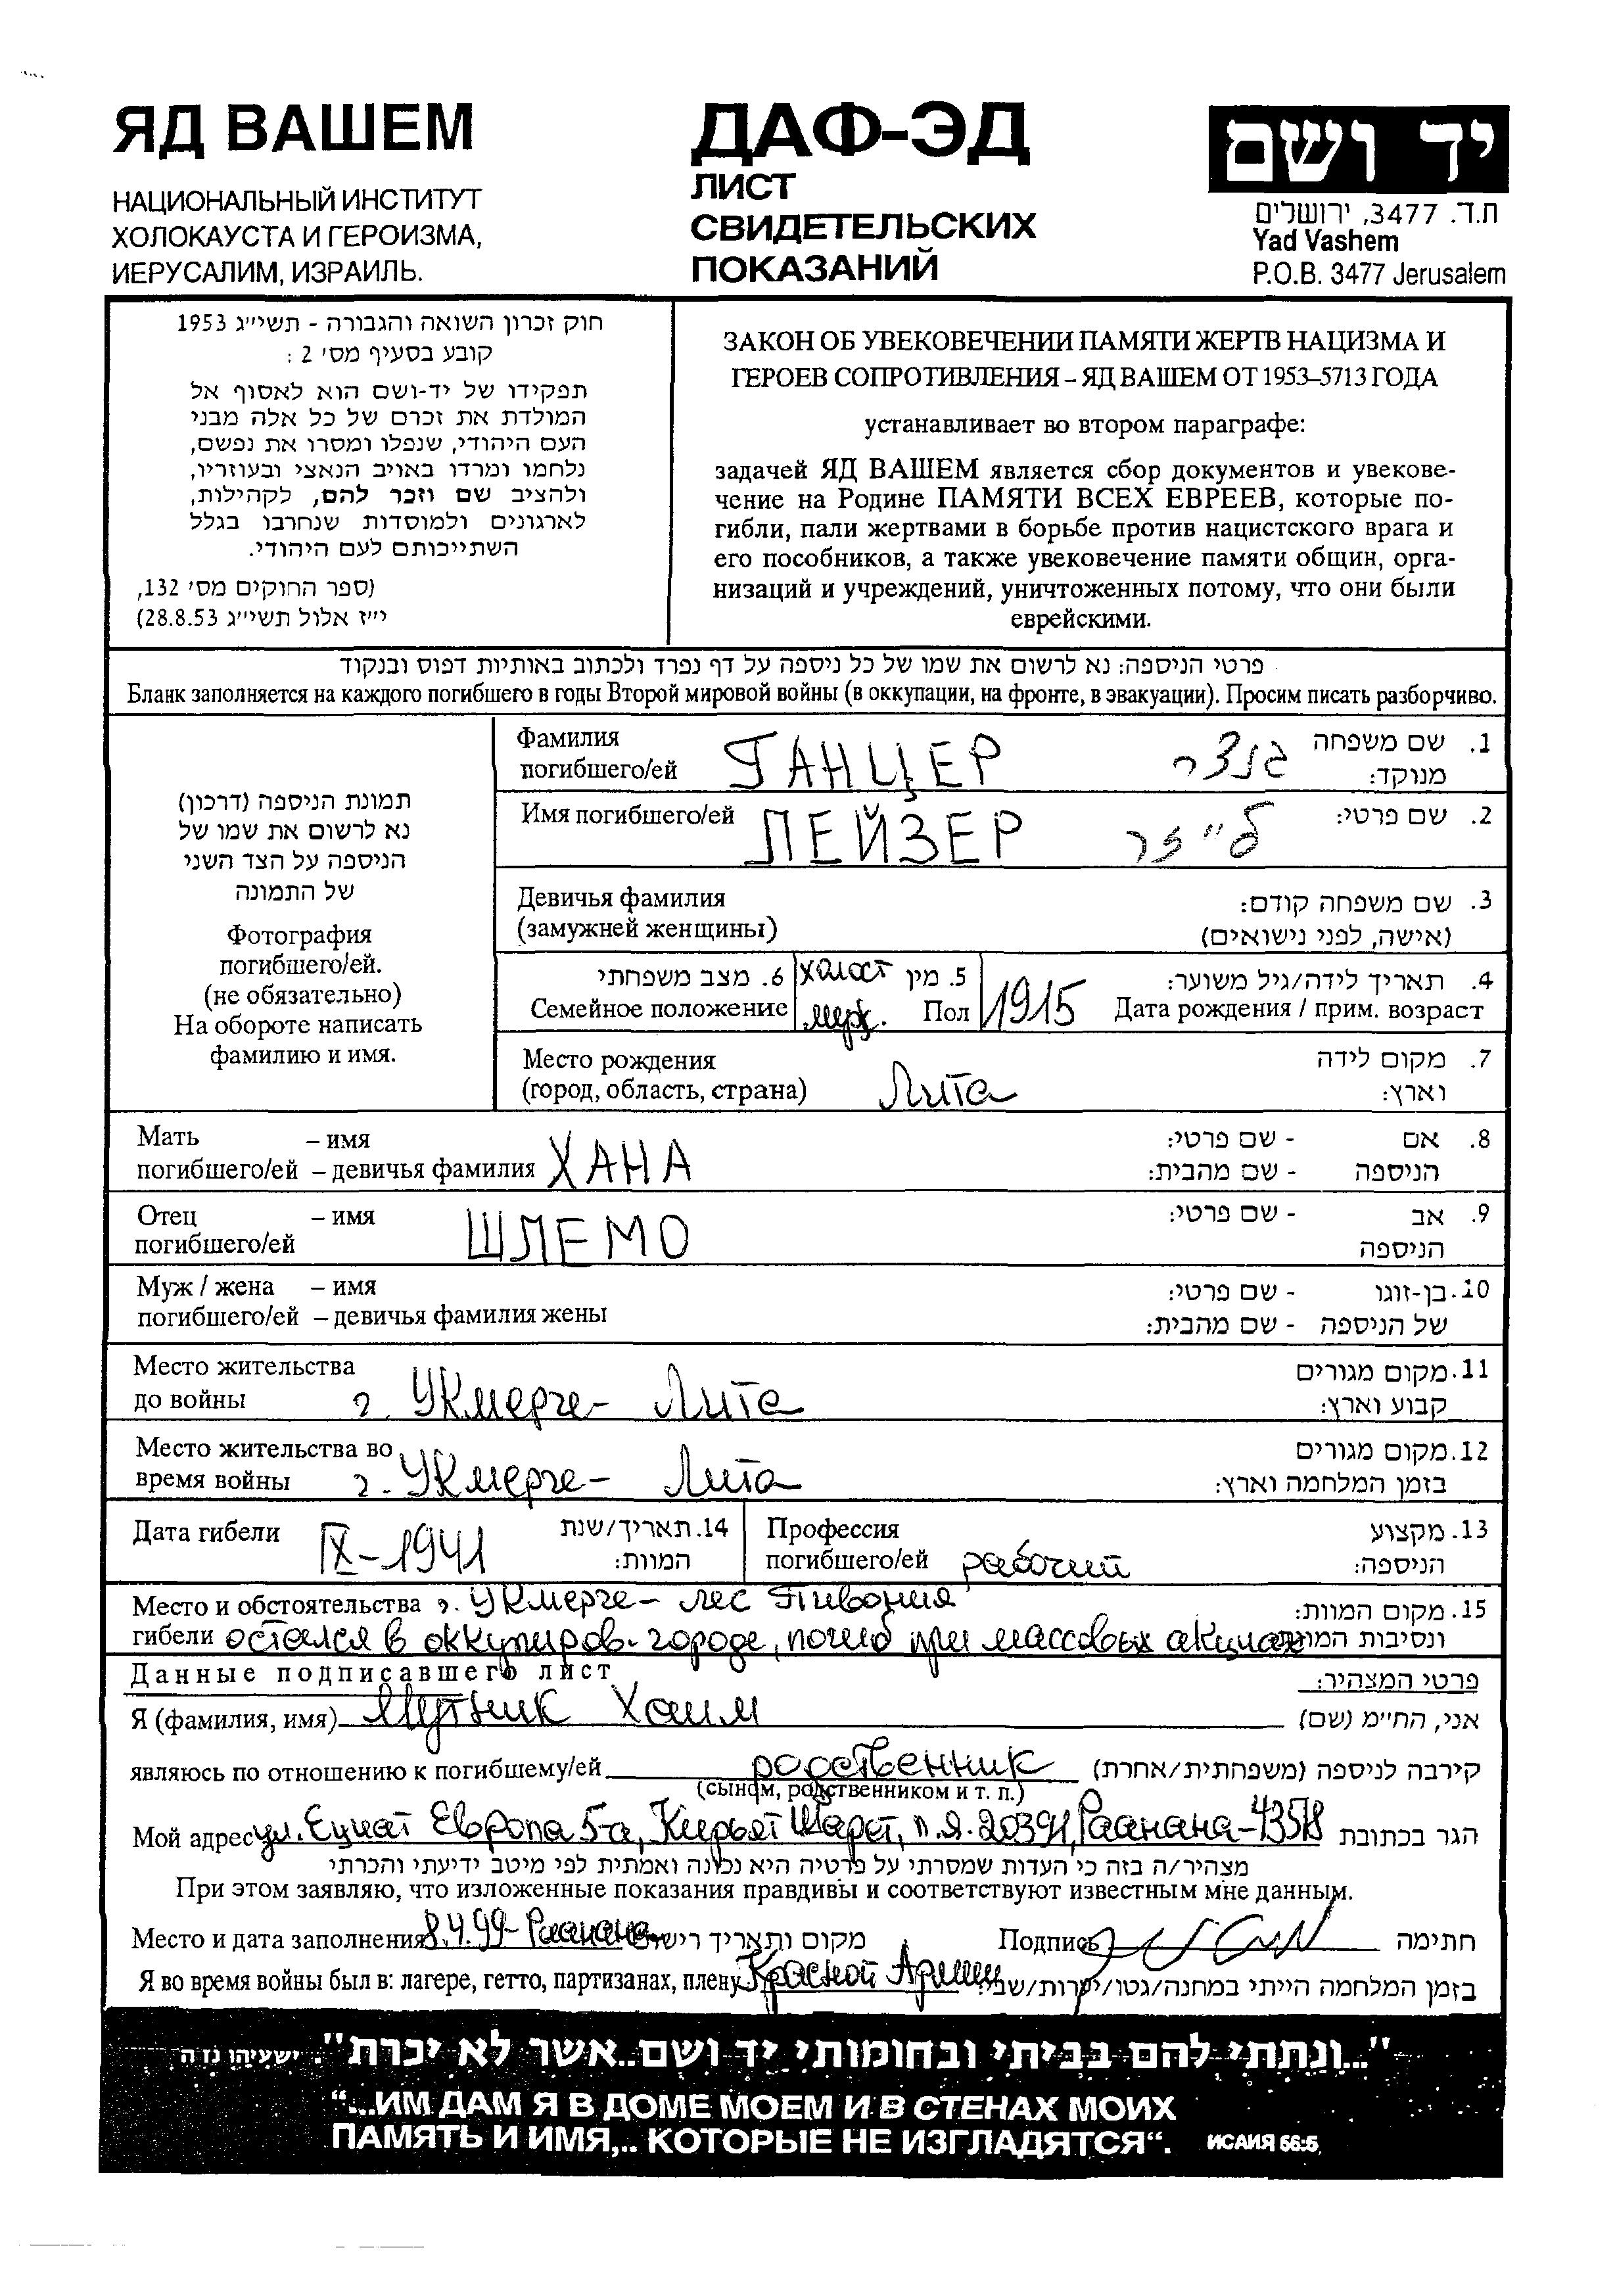 ЯД ВАШЕМ
НАЦИОНАЛЬНЫЙ ИНСТИТУТ
ХОЛОКАУСТА И ГЕРОИЗМА,
ИЕРУСАЛИМ, ИЗРАИЛЬ.
ДАФ-ЭД
ЛИСТ
СВИДЕТЕЛЬСКИХ
ПОКАЗАНИЙ
יד ושם
ת.ד. 3477, ירושלים
Yad Vashem
P.O.B. 3477 Jerusalem
חוק זכרון השואה והגבורה - תשי״ג 1953
קובע בסעיף מס׳ 2 :
תפקידו של יד-ושם הוא לאסוף אל
המולדת את זכרם של כל אלה מבני
העם היהודי, שנפלו ומסרו את נפשם,
נלחמו ומרדו באויב הנאצי ובעוזריו,
ולהציב שם וזכר להם, לקהילות,
לארגונים ולמוסדות שנחרבו בגלל
השתייכותם לעם היהודי.
(ספר החוקים מס׳ 132,
י״ז אלול תשי״ג 28.8.53)
ЗАКОН ОБ УВЕКОВЕЧЕНИИ ПАМЯТИ ЖЕРТВ НАЦИЗМА И
ГЕРОЕВ СОПРОТИВЛЕНИЯ – ЯД ВАШЕМ ОТ 1953–5713 ГОДА
устанавливает во втором параграфе:
задачей ЯД ВАШЕМ является сбор документов и увекове-
чение на Родине ПАМЯТИ ВСЕХ ЕВРЕЕВ, которые по-
гибли, пали жертвами в борьбе против нацистского врага и
его пособников, а также увековечение памяти общин, орга-
низаций и учреждений, уничтоженных потому, что они были
еврейскими.
פרטי הניספה: נא לרשום את שמו של כל ניספה על דף נפרד ולכתוב באותיות דפוס ובנקוד
Бланк заполняется на каждого погибшего в годы Второй мировой войны (в оккупации, на фронте, в эвакуации). Просим писать разборчиво.
תמונת הניספה (דרכון)
נא לרשום את שמו של
הניספה על הצד השני
של התמונה
Фотография
погибшего/ей.
(не обязательно)
На обороте написать
фамилию и имя.
Фамилия ГАНЦЕР גנצר 1. שם משפחה
погибшего/ей מנוקד:
Имя погибшего/ей ЛЕЙЗЕР לייזר 2. שם פרטי:
Девичья фамилия 3. שם משפחה קודם:
(замужней женщины) (אישה, לפני נישואים)
6. מצב משפחתי холост 5. מין 4. תאריך לידה/גיל משוער:
Семейное положение муж. Пол 1915 Дата рождения / прим. возраст
Место рождения 7. מקום לידה
(город, область, страна) Лита וארץ:
Мать – имя - שם פרטי: 8. אם
погибшего/ей – девичья фамилия ХАНА - שם מהבית: הניספה
Отец – имя ШЛЕМО - שם פרטי: 9. אב
погибшего/ей הניספה
Муж / жена – имя - שם פרטי: 10. בן-זוגו
погибшего/ей – девичья фамилия жены - שם מהבית: של הניספה
Место жительства 11. מקום מגורים
до войны г. Укмерге - Лита קבוע וארץ:
Место жительства во 12. מקום מגורים
время войны г. Укмерге - Лита בזמן המלחמה וארץ:
Дата гибели IX-1941 14. תאריך/שנת Профессия 13. מקצוע
המוות: погибшего/ей рабочий הניספה:
Место и обстоятельства г. Укмерге - лес Пивония 15. מקום המוות:
гибели остался в оккупиров. городе, погиб при массовых акциях ונסיבות המוות
Данные подписавшего лист פרטי המצהיר:
Я (фамилия, имя) Мутник Хаим אני, החי״מ (שם)
являюсь по отношению к погибшему/ей родственник קירבה לניספה (משפחתית/אחרת)
(сыном, родственником и т. п.)
Мой адрес ул. Ециат Европа 5-а, Кирьят Шарет, п.я. 20391, Раанана - הגר בכתובת
מצהיר/ה בזה כי העדות שמסרתי על פרטיה היא נכונה ואמתית לפי מיטב ידיעתי והכרתי
При этом заявляю, что изложенные показания правдивы и соответствуют известным мне данным.
Место и дата заполнения 8.4.99 - Раанана מקום ותאריך רישום Подпись חתימה
Я во время войны был в: лагере, гетто, партизанах, плену Красной Армии בזמן המלחמה הייתי במחנה/גטו/יערות/שבי:
"...ונתתי להם בביתי ובחומותי יד ושם..אשר לא יכרת". ישעיהו נו ה
“...ИМ ДАМ Я В ДОМЕ МОЕМ И В СТЕНАХ МОИХ
ПАМЯТЬ И ИМЯ,.. КОТОРЫЕ НЕ ИЗГЛАДЯТСЯ“. ИСАИЯ 56:5,